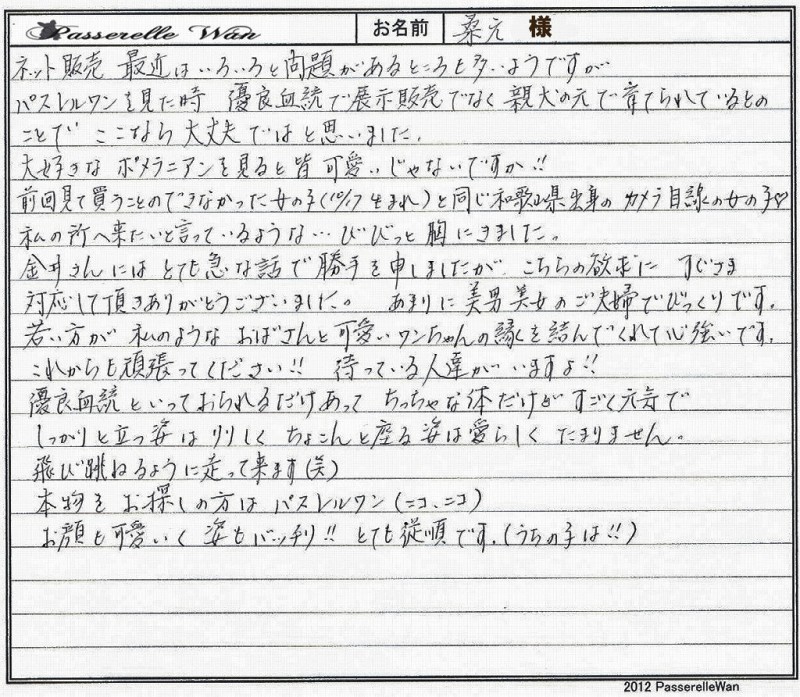 Passerelle Wan お名前 桑元 様
ネット販売 最近はいろいろと問題があるところも多いようですが
パストレルワンを見た時 優良血統で展示販売でなく親犬の元で育てられているとの
ことで ここなら大丈夫ではと思いました。
大好きな ポメラニアンを見ると皆可愛いじゃないですか!!
前回見て買うことのできなかった女の子(10/17生まれ)と同じ和歌山県出身の カメラ目線の女の子♡
私の所へ来たいと言っているような… びびっと胸にきました。
金井さんには とても急な話で勝手を申しましたが、こちらの欲求に すぐさま
対応して頂きありがとうございました。 あまりに美男美女のご夫婦でびっくりです。
若い方が 私のような おばさんと可愛いワンちゃんの縁を結んでくれて心強いです。
これからも頑張ってください!! 待っている人達がいますよ!!
優良血統といっておられるだけあって ちっちゃな体だけが すごく元気で
しっかりと立つ姿は りりしく ちょこんと座る姿は愛らしく たまりません。
飛び跳ねるように走って来ます(笑)
本物をお探しの方は パストレルワン(ニコ、ニコ)
お顔も可愛いく 姿もバッチリ!! とても従順です。(うちの子は!!)
2012 PasserelleWan